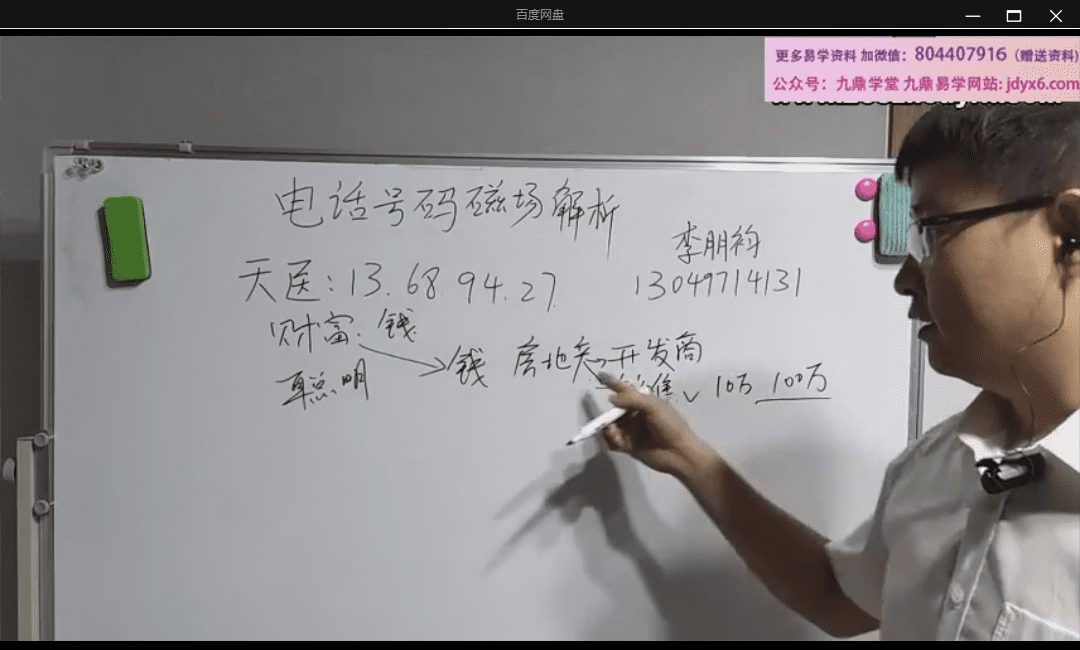 百度网盘
更多易学资料 加微信：804407916（赠送资料)
公众号：九鼎学堂 九鼎易学网站: jdyx6.com
电话号码磁场解析
李朋衿
天医：13.68.94.27.
13049714131
财富：钱
钱 房地产 开发商
聪明
10万 100万